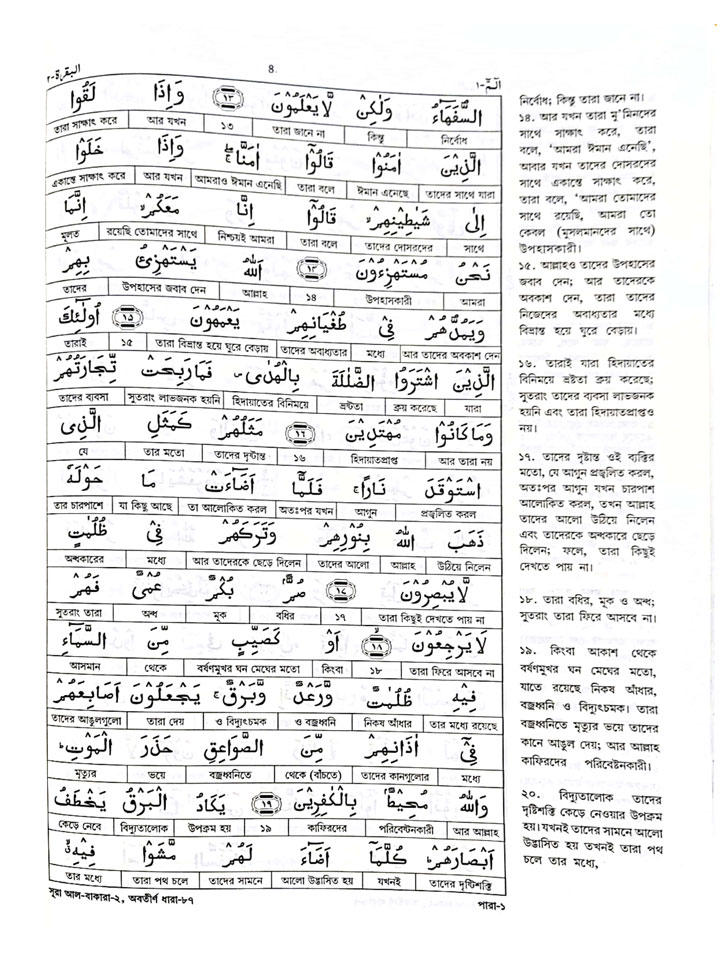 الٓمّٓ-١
৪
البقرة-٢
السُّفَهَآءُ وَلٰكِنْ لَّا يَعْلَمُوْنَ ﴿١٣﴾ وَاِذَا لَقُوا
নির্বোধ কিন্তু তারা জানে না ১৩ আর যখন তারা সাক্ষাৎ করে
الَّذِيْنَ اٰمَنُوْا قَالُوْٓا اٰمَنَّا ۚ وَاِذَا خَلَوْا
তাদের সাথে যারা ঈমান এনেছে তারা বলে আমরাও ঈমান এনেছি আর যখন একান্তে সাক্ষাৎ করে
اِلٰى شَيٰطِيْنِهِمْ ۙ قَالُوْٓا اِنَّا مَعَكُمْ ۙ اِنَّمَا
সাথে তাদের দোসরদের তারা বলে নিশ্চয়ই আমরা রয়েছি তোমাদের সাথে মূলত
نَحْنُ مُسْتَهْزِءُوْنَ ﴿١٤﴾ اَللّٰهُ يَسْتَهْزِئُ بِهِمْ
আমরা উপহাসকারী ১৪ আল্লাহ উপহাসের জবাব দেন তাদের
وَيَمُدُّهُمْ فِيْ طُغْيَانِهِمْ يَعْمَهُوْنَ ﴿١٥﴾ اُولٰٓئِكَ
আর তাদের অবকাশ দেন মধ্যে তাদের অবাধ্যতার তারা বিভ্রান্ত হয়ে ঘুরে বেড়ায় ১৫ তারাই
الَّذِيْنَ اشْتَرَوُا الضَّلٰلَةَ بِالْهُدٰى ۪ فَمَا رَبِحَتْ تِّجَارَتُهُمْ
যারা ক্রয় করেছে ভ্রষ্টতা হিদায়াতের বিনিময়ে সুতরাং লাভজনক হয়নি তাদের ব্যবসা
وَمَا كَانُوْا مُهْتَدِيْنَ ﴿١٦﴾ مَثَلُهُمْ كَمَثَلِ الَّذِى
আর তারা নয় হিদায়াতপ্রাপ্ত ১৬ তাদের দৃষ্টান্ত তার মতো যে
اسْتَوْقَدَ نَارًا ۚ فَلَمَّآ اَضَآءَتْ مَا حَوْلَهٗ
প্রজ্বলিত করল আগুন অতঃপর যখন তা আলোকিত করল যা কিছু আছে তার চারপাশে
ذَهَبَ اللّٰهُ بِنُوْرِهِمْ وَتَرَكَهُمْ فِيْ ظُلُمٰتٍ
উঠিয়ে নিলেন আল্লাহ তাদের আলো আর তাদেরকে ছেড়ে দিলেন মধ্যে অন্ধকারের
لَّا يُبْصِرُوْنَ ﴿١٧﴾ صُمٌّۢ بُكْمٌ عُمْىٌ فَهُمْ
তারা কিছুই দেখতে পায় না ১৭ বধির মূক অন্ধ সুতরাং তারা
لَا يَرْجِعُوْنَ ﴿١٨﴾ اَوْ كَصَيِّبٍ مِّنَ السَّمَآءِ
তারা ফিরে আসবে না ১৮ কিংবা বর্ষণমুখর ঘন মেঘের মতো থেকে আসমান
فِيْهِ ظُلُمٰتٌ وَّرَعْدٌ وَّبَرْقٌ ۚ يَجْعَلُوْنَ اَصَابِعَهُمْ
তার মধ্যে রয়েছে নিকষ আঁধার ও বজ্রধ্বনি ও বিদ্যুৎচমক তারা দেয় তাদের আঙুলগুলো
فِيْٓ اٰذَانِهِمْ مِّنَ الصَّوَاعِقِ حَذَرَ الْمَوْتِ ؕ
মধ্যে তাদের কানগুলোর থেকে (বাঁচতে) বজ্রধ্বনিতে ভয়ে মৃত্যুর
وَاللّٰهُ مُحِيْطٌۢ بِالْكٰفِرِيْنَ ﴿١٩﴾ يَكَادُ الْبَرْقُ يَخْطَفُ
আর আল্লাহ পরিবেষ্টনকারী কাফিরদের ১৯ উপক্রম হয় বিদ্যুতালোক কেড়ে নেবে
اَبْصَارَهُمْ ؕ كُلَّمَآ اَضَآءَ لَهُمْ مَّشَوْا فِيْهِ ۙ
তাদের দৃষ্টিশক্তি যখনই আলো উদ্ভাসিত হয় তাদের সামনে তারা পথ চলে তার মধ্যে
সূরা আল-বাকারা-২, অবতীর্ণ ধারা-৮৭
পারা-১
নির্বোধ; কিন্তু তারা জানে না।
১৪. আর যখন তারা মু'মিনদের
সাথে সাক্ষাৎ করে, তারা
বলে, 'আমরা ঈমান এনেছি',
আবার যখন তাদের দোসরদের
সাথে একান্তে সাক্ষাৎ করে,
তারা বলে, 'আমরা তোমাদের
সাথে রয়েছি, আমরা তো
কেবল (মুসলমানদের সাথে)
উপহাসকারী।
১৫. আল্লাহও তাদের উপহাসের
জবাব দেন; আর তাদেরকে
অবকাশ দেন, তারা তাদের
নিজেদের অবাধ্যতার মধ্যে
বিভ্রান্ত হয়ে ঘুরে বেড়ায়।
১৬. তারাই যারা হিদায়াতের
বিনিময়ে ভ্রষ্টতা ক্রয় করেছে;
সুতরাং তাদের ব্যবসা লাভজনক
হয়নি এবং তারা হিদায়াতপ্রাপ্তও
নয়।
১৭. তাদের দৃষ্টান্ত ওই ব্যক্তির
মতো, যে আগুন প্রজ্বলিত করল,
অতঃপর আগুন যখন চারপাশ
আলোকিত করল, তখন আল্লাহ
তাদের আলো উঠিয়ে নিলেন
এবং তাদেরকে অন্ধকারে ছেড়ে
দিলেন; ফলে, তারা কিছুই
দেখতে পায় না।
১৮. তারা বধির, মূক ও অন্ধ;
সুতরাং তারা ফিরে আসবে না।
১৯. কিংবা আকাশ থেকে
বর্ষণমুখর ঘন মেঘের মতো,
যাতে রয়েছে নিকষ আঁধার,
বজ্রধ্বনি ও বিদ্যুৎচমক। তারা
বজ্রধ্বনিতে মৃত্যুর ভয়ে তাদের
কানে আঙুল দেয়; আর আল্লাহ
কাফিরদের পরিবেষ্টনকারী।
২০. বিদ্যুতালোক তাদের
দৃষ্টিশক্তি কেড়ে নেওয়ার উপক্রম
হয়। যখনই তাদের সামনে আলো
উদ্ভাসিত হয় তখনই তারা পথ
চলে তার মধ্যে,